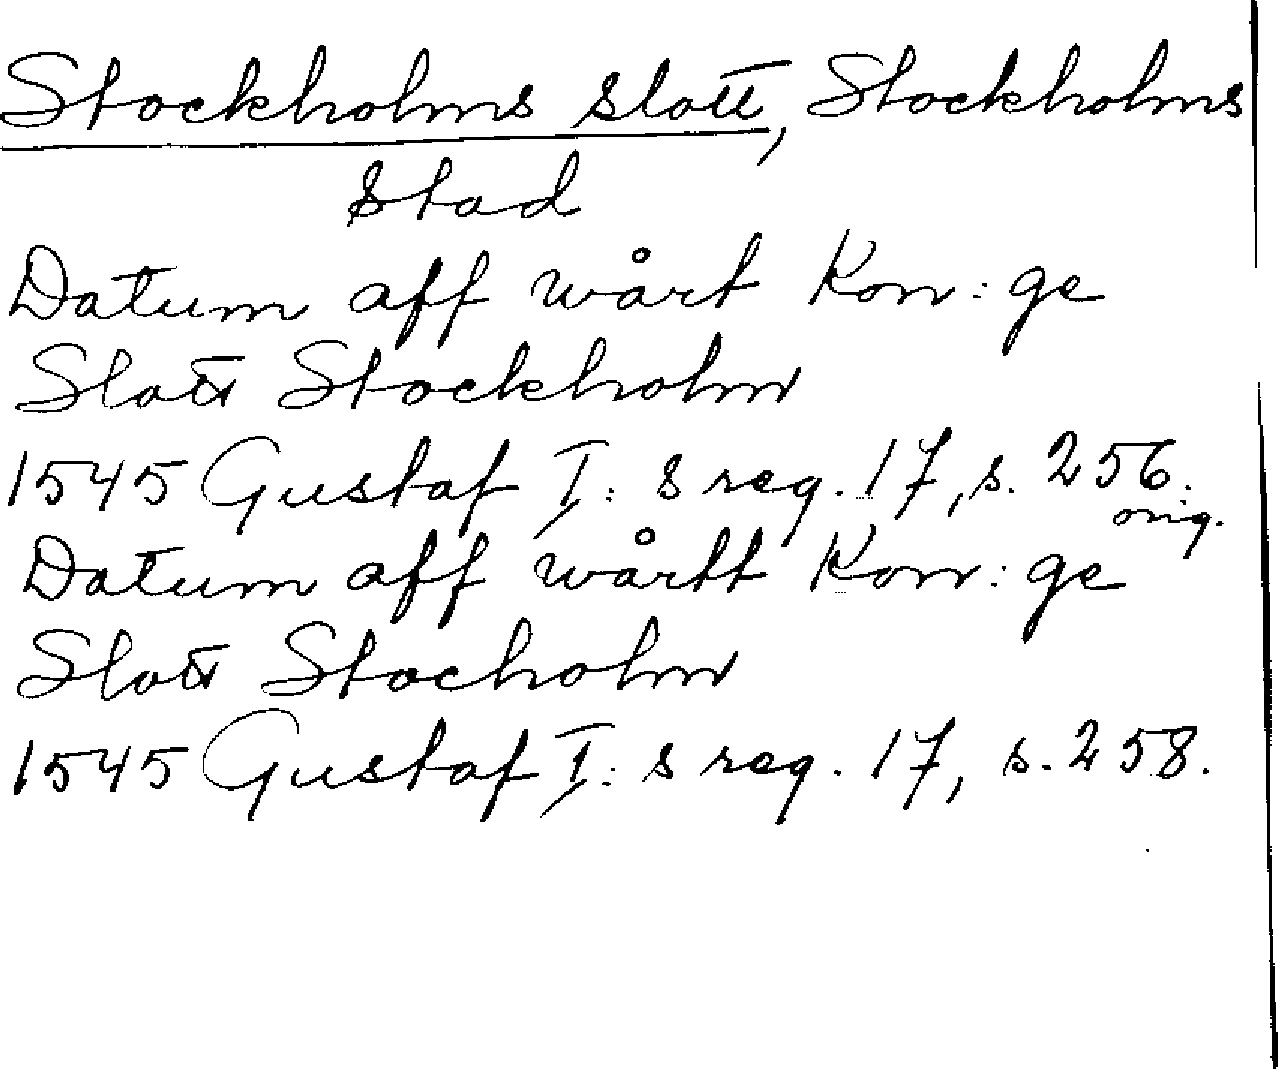 Stockholms slott, Stockholms
stad
Datum aff wårt Kon:ge
Slott Stockholm
1545 Gustaf I:s reg. 17, s. 256.
orig.
Datum aff wårtt Kon:ge
Slott Stocholm
1545 Gustaf I:s reg. 17, s. 258.